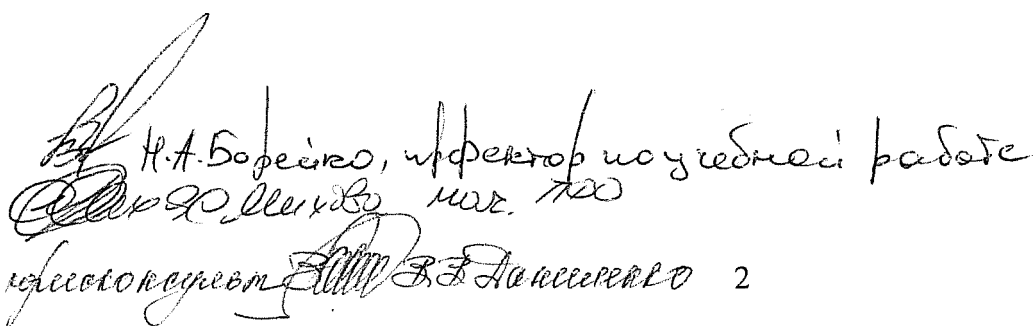 Н.А.Борейко, проректор по учебной работе
нач. ПОО
юрисконсульт В.В Даниленко 2